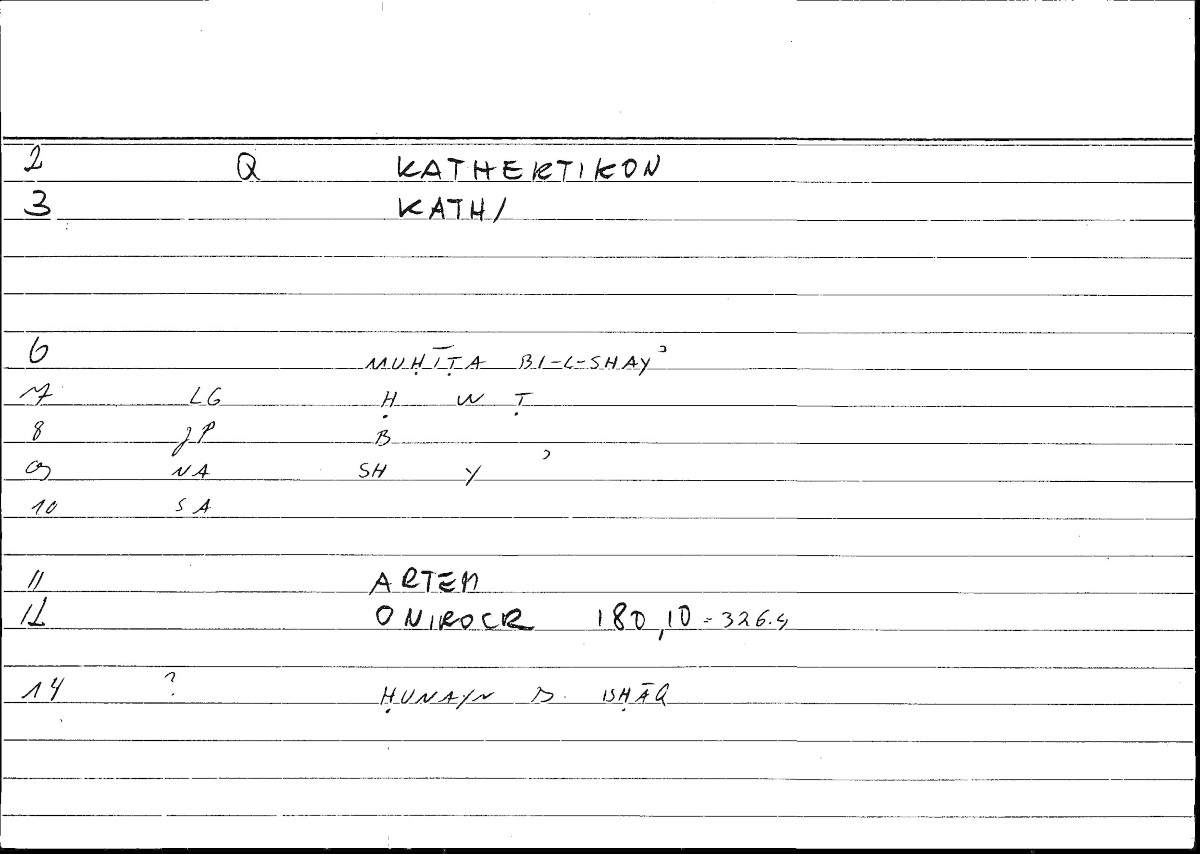 2 Q KATHEKTIKON
3 KATH/
6 MUḤĪṬA BI-L-SHAYʾ
7 LG Ḥ W Ṭ
8 JP B
9 NA SH Y ʾ
10 SA
11 ARTEM
12 ONIROCR 180,10 = 326.4
14 ? ḤUNAYN B. ISḤĀQ